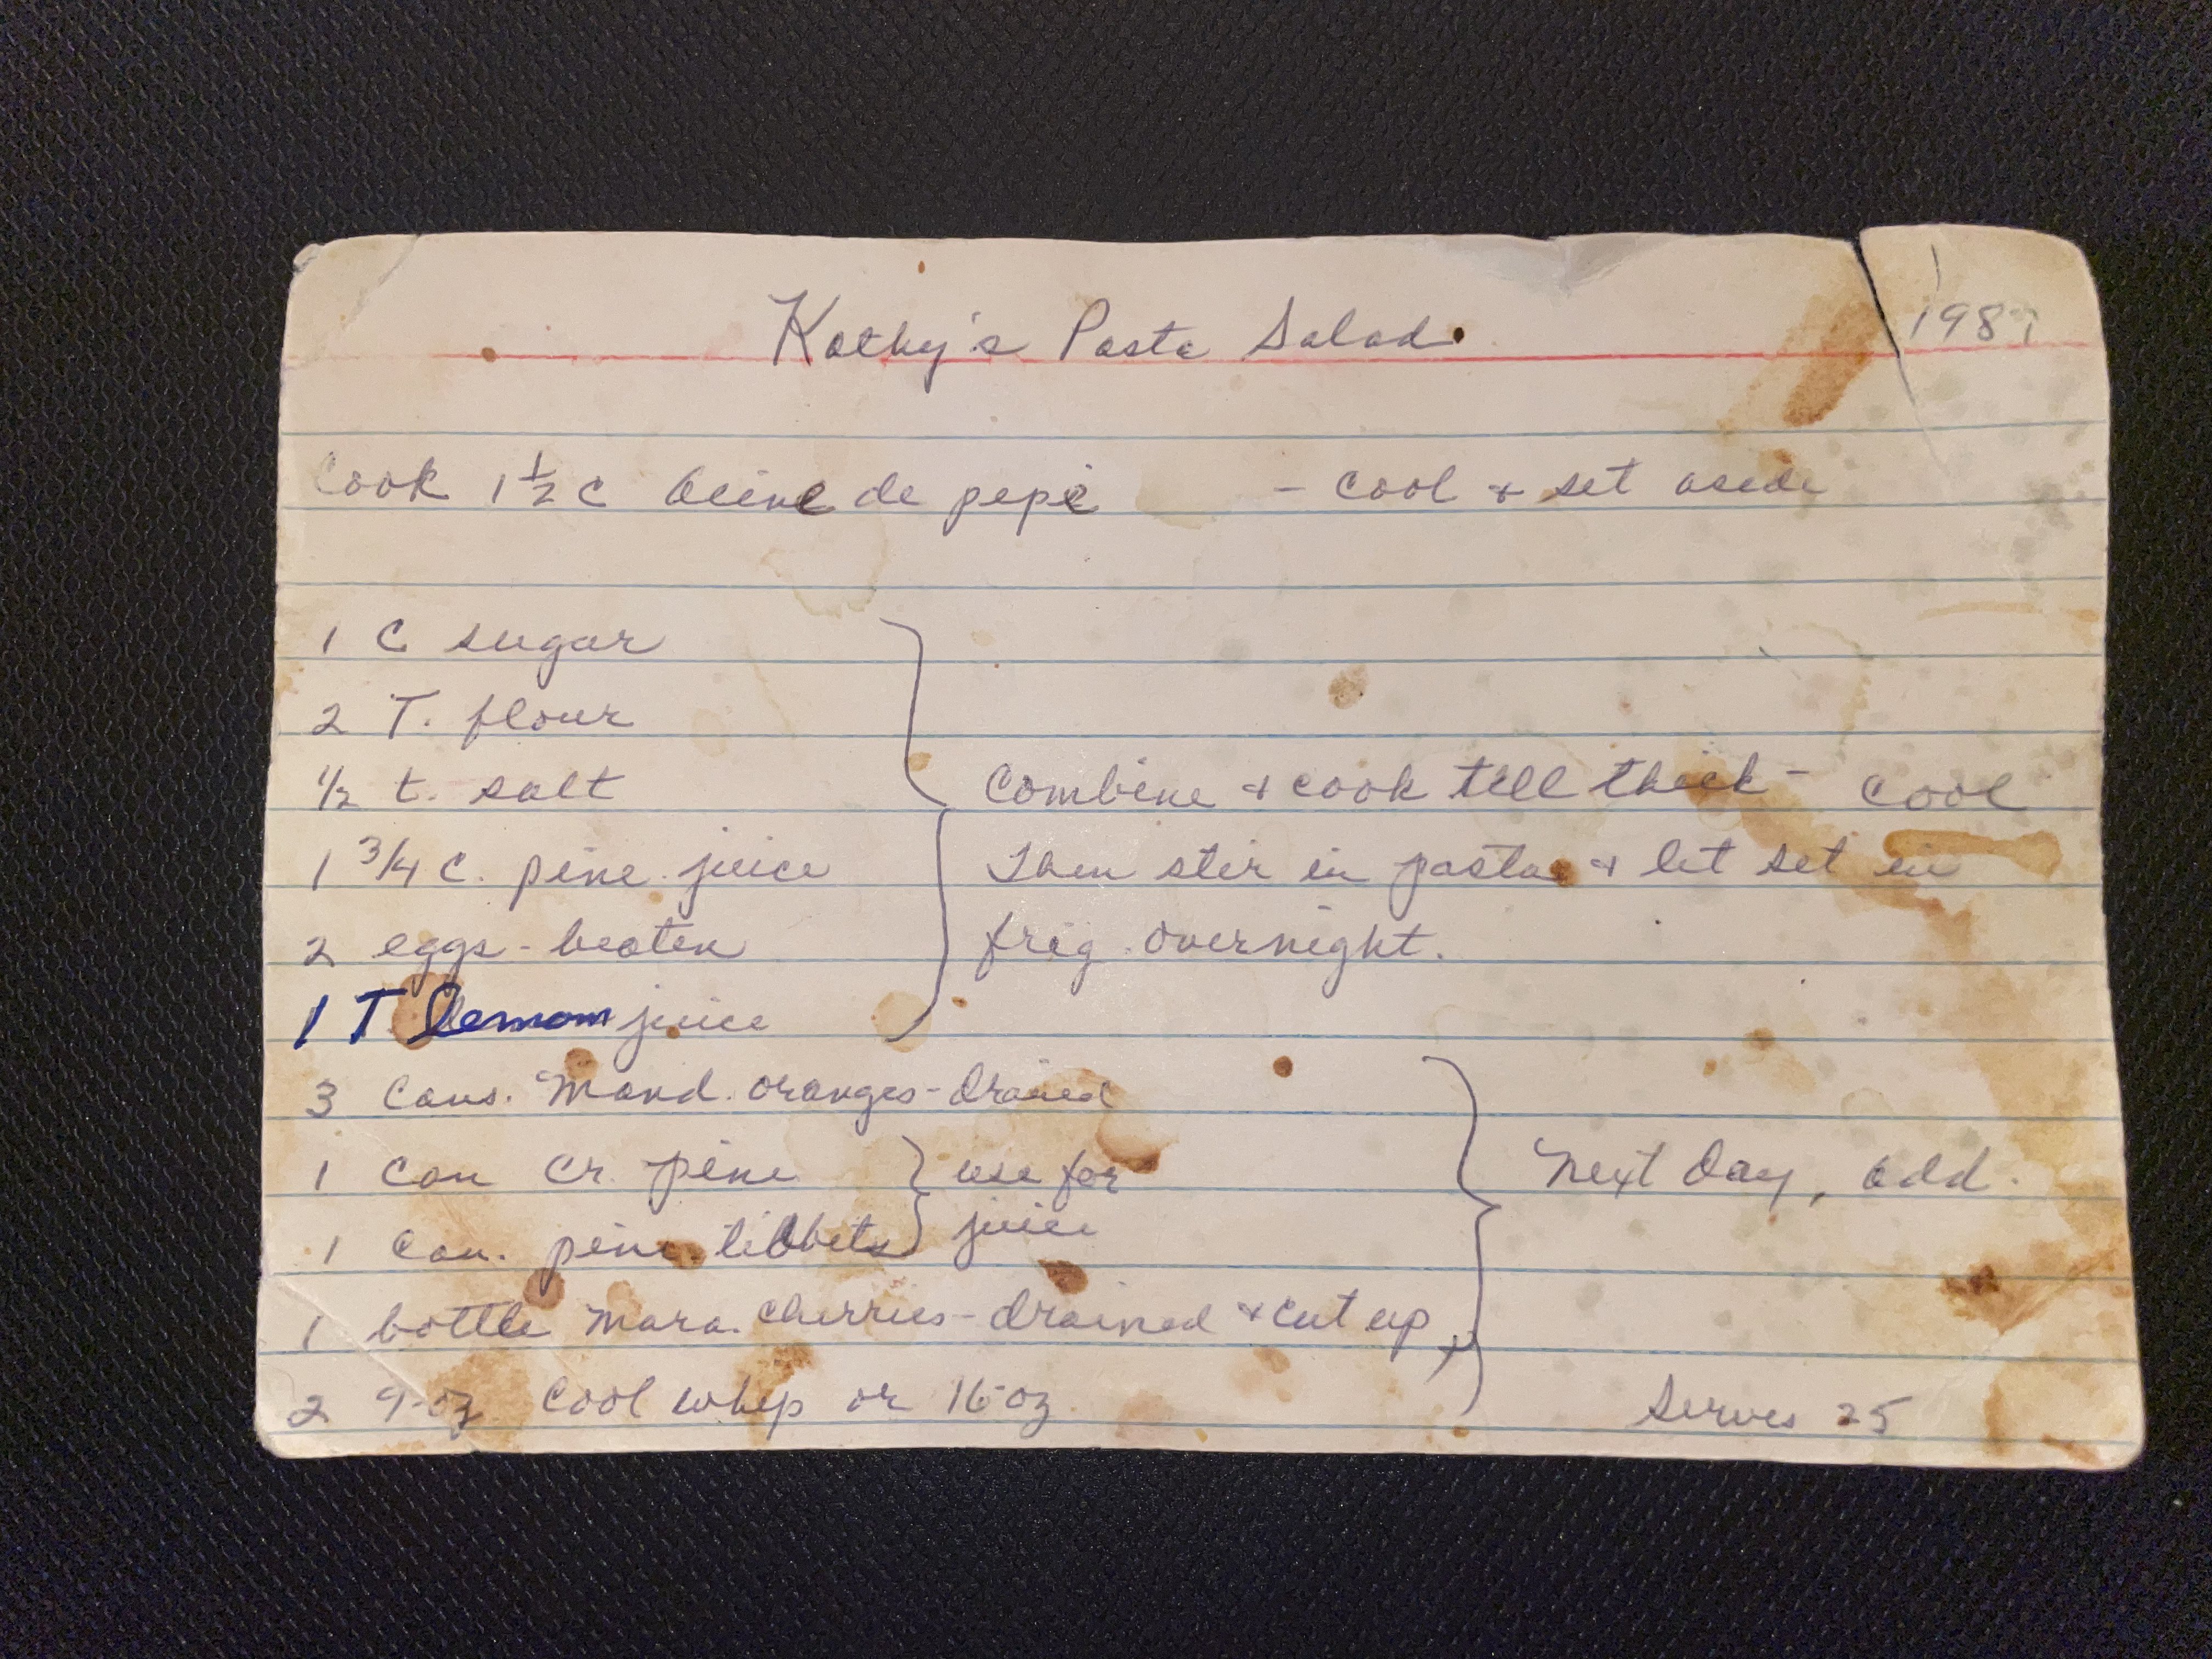 Kathy's Pasta Salad 1987
Cook 1 1/2 c acine de pepe - cool + set aside
1 C sugar
2 T. flour
1/2 t. salt
Combine + cook till thick - cool
1 3/4 c. pine. juice
Then stir in pasta + let set in
2 eggs - beaten
frig. overnight.
1 T lemon juice
3 cans. Mand. oranges - drained
1 can cr. pine } use for
Next day, add.
1 can. pine. tidbets } juice
1 bottle mara. cherries - drained + cut up +
2 9-oz. Cool whip or 16 oz.
Serves 25